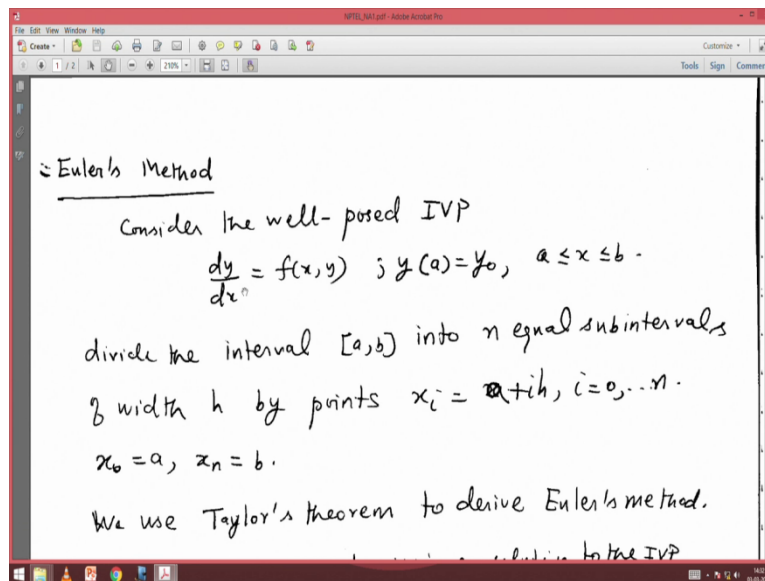 NPTEL_NA1.pdf - Adobe Acrobat Pro
File Edit View Window Help
Create
Customize
1 / 2 210% Tools Sign Commen
Euler's Method
Consider the well-posed IVP
dy/dx = f(x, y) ; y(a) = y₀, a ≤ x ≤ b.
divide the interval [a,b] into n equal subintervals
of width h by points xᵢ = a+ih, i=0,...n.
x₀ = a, xₙ = b.
We use Taylor's theorem to derive Euler's method.
solution to the IVP